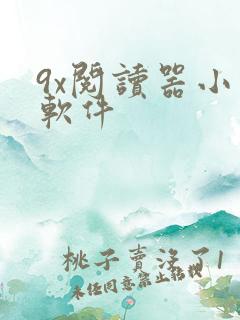 9x閱讀器小
軟件
桃子賣沒了1
未經同意禁止轉載